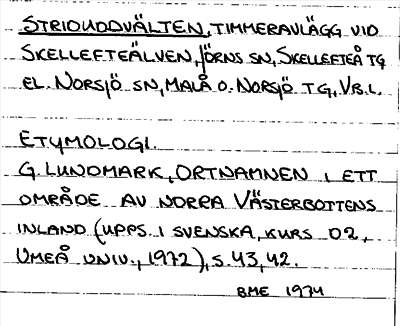 STRIOUDDVÄLTEN, TIMMERAVLÄGG VID
SKELLEFTEÄLVEN, JÖRNS SN, SKELLEFTEÅ TG
EL. NORSJÖ SN, MALÅ O. NORSJÖ TG, VB. L.
ETYMOLOGI.
G. LUNDMARK, ORTNAMNEN I ETT
OMRÅDE AV NORRA VÄSTERBOTTENS
INLAND (UPPS. I SVENSKA, KURS D2,
UMEÅ UNIV., 1972), S. 43, 42.
BME 1974